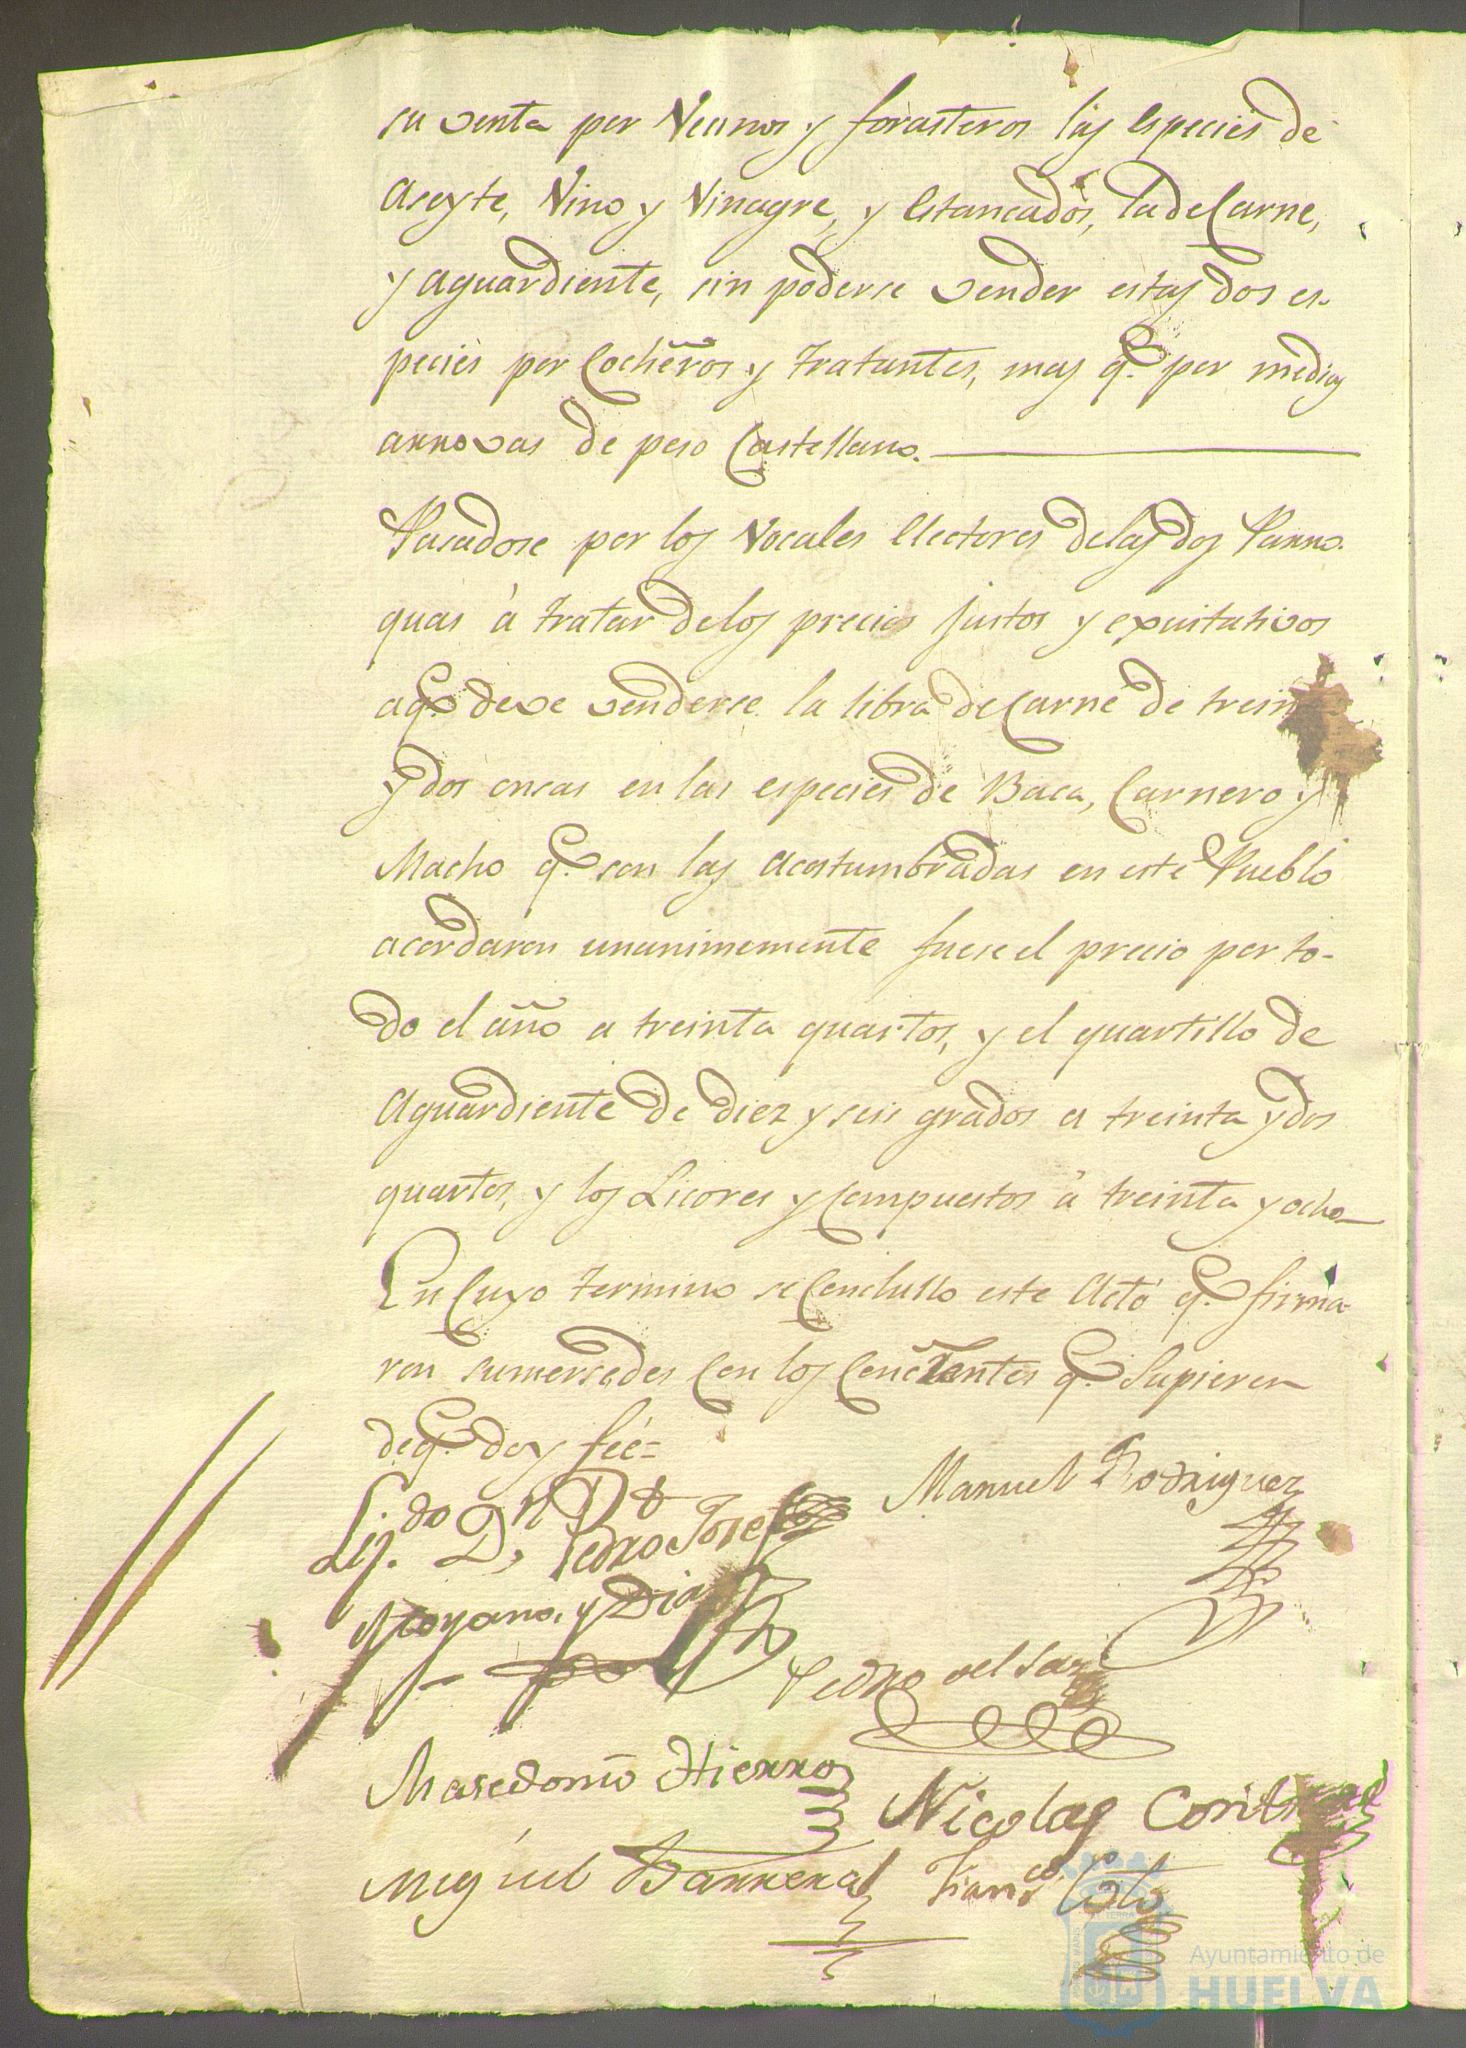 su venta por Vecinos y forasteros las especies de
Aseyte, Vino y Vinagre, y estancados, la de Carne,
y Aguardiente, sin poderse vender estas dos es-
pecies por Cocheros y tratantes, mas q.e por medias
arrovas de peso Castellano.
Pasadose por los Vocales electores de las dos Parro-
quias á tratar de los precios justos y equitativos
a q.e deve venderse la libra de Carne de treinta
y dos onsas en las especies de Baca, Carnero y
Macho q.e son las acostumbradas en este Pueblo
acordaron unanimemente fuese el precio por to-
do el año a treinta quartos, y el quartillo de
Aguardiente de diez y seis grados a treinta y dos
quartos, y los Licores y Compuestos á treinta y ocho
En Cuyo termino se Conclullo este Acto q.e firma-
ron sumersedes con los Concurrentes q.e Supieron
de q.e doy feé=
Lij.do D.n Pedro Josef
Moyano, y Dias
Manuel Rodriguez
Pedro del
Masedonio Hierro
Nicolas
Miguel Barrera
Fran.co Coto
Ayuntamiento de
HUELVA